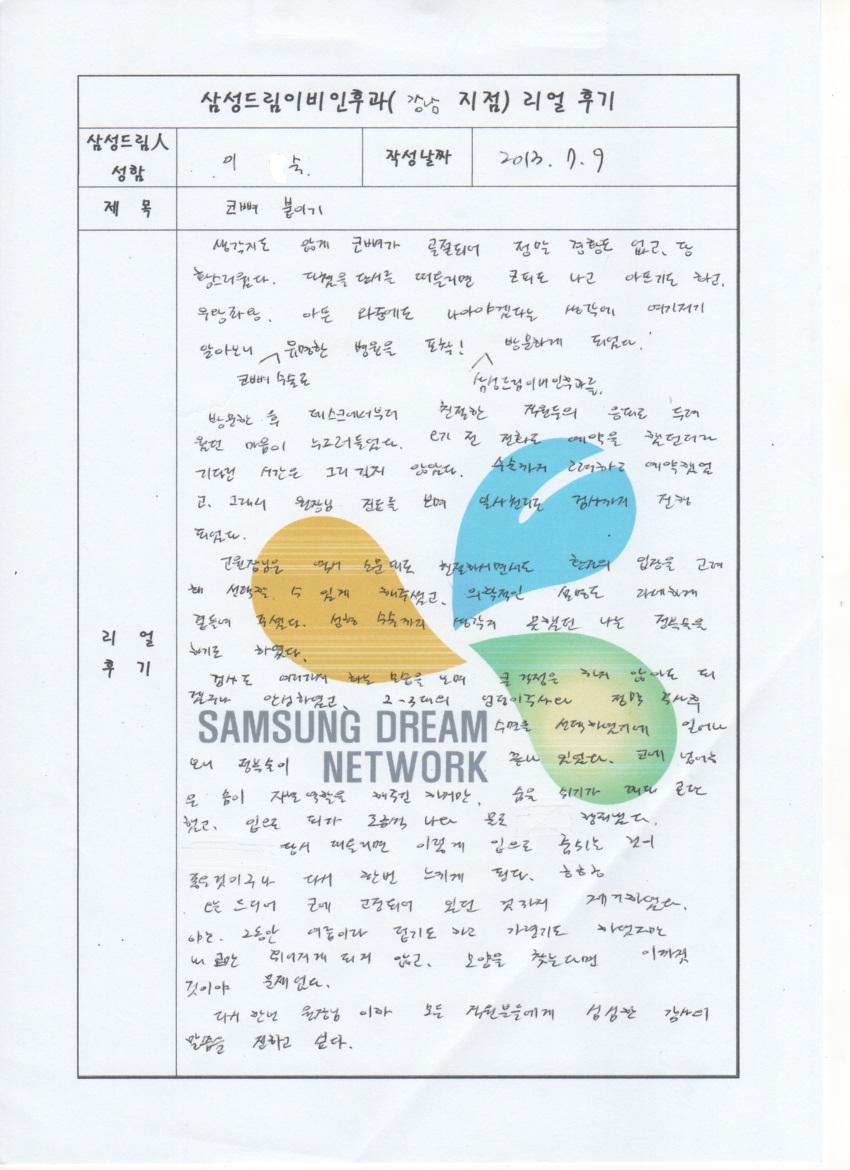 삼성드림이비인후과( 강남 지점) 리얼 후기
삼성드림人
성함
이 숙.
작성날짜
2013. 7. 9
제 목
코뼈 붙이기
리 얼
후 기
생각지도 않게 코뼈가 골절되어 정말 경황도 없고, 당
황스러웠다. 다쳤을 당시를 떠올리면 코피도 나고 아프기도 하고,
우왕좌왕. 아픈 와중에도 나아야겠다는 생각에 여기저기
알아보니 유명한 병원을 포착! 방문하게 되었다.
코뼈 수술로 삼성드림이비인후과를,
방문한 후 데스크에서부터 친절한 직원들의 응대로 두려
웠던 마음이 누그러들었다. 오기 전 전화로 예약을 했던터라
기다린 시간은 그리 길지 않았다. 수술까지 고려하고 예약했었
고, 그래서 원장님 진료를 보며 일사천리로 검사까지 진행
되었다.
고원장님은 역시 소문대로 친절하시면서도 환자의 입장을 고려
해 선택할 수 있게 해주셨고, 의학적인 설명도 자세하게
곁들여 주셨다. 성형 수술까지 생각지 못했던 나는 정복술을
하기로 하였다.
검사도 여러가지 하는 모습을 보며 큰 걱정을 하지 않아도 되
겠구나 안심하였고, 2-3대의 엉덩이주사와 정맥 주사후
수면을 선택하였기에 일어나
보니 정복술이 끝나 있었다. 코에 넣어놓
은 솜이 지탱역할을 해주긴 하지만, 숨을 쉬기가 매우 곤란
했고, 입으로 피가 조금씩 나와 물로 헹궈냈다.
당시 떠올리면 이렇게 입으로 숨쉬는 것이
힘든것이구나 다시 한번 느끼게 된다. 하하하
오늘 드디어 코에 고정되어 있던 것까지 제거하였다.
야호. 그동안 여름이라 덥기도 하고 가렵기도 하였지만
내 코만 휘어지게 되지 않고, 모양을 찾는다면 이까짓
것이야 문제없다.
다시 한번 원장님 이하 모든 직원분들에게 심심한 감사의
말씀을 전하고 싶다.
SAMSUNG DREAM
NETWORK